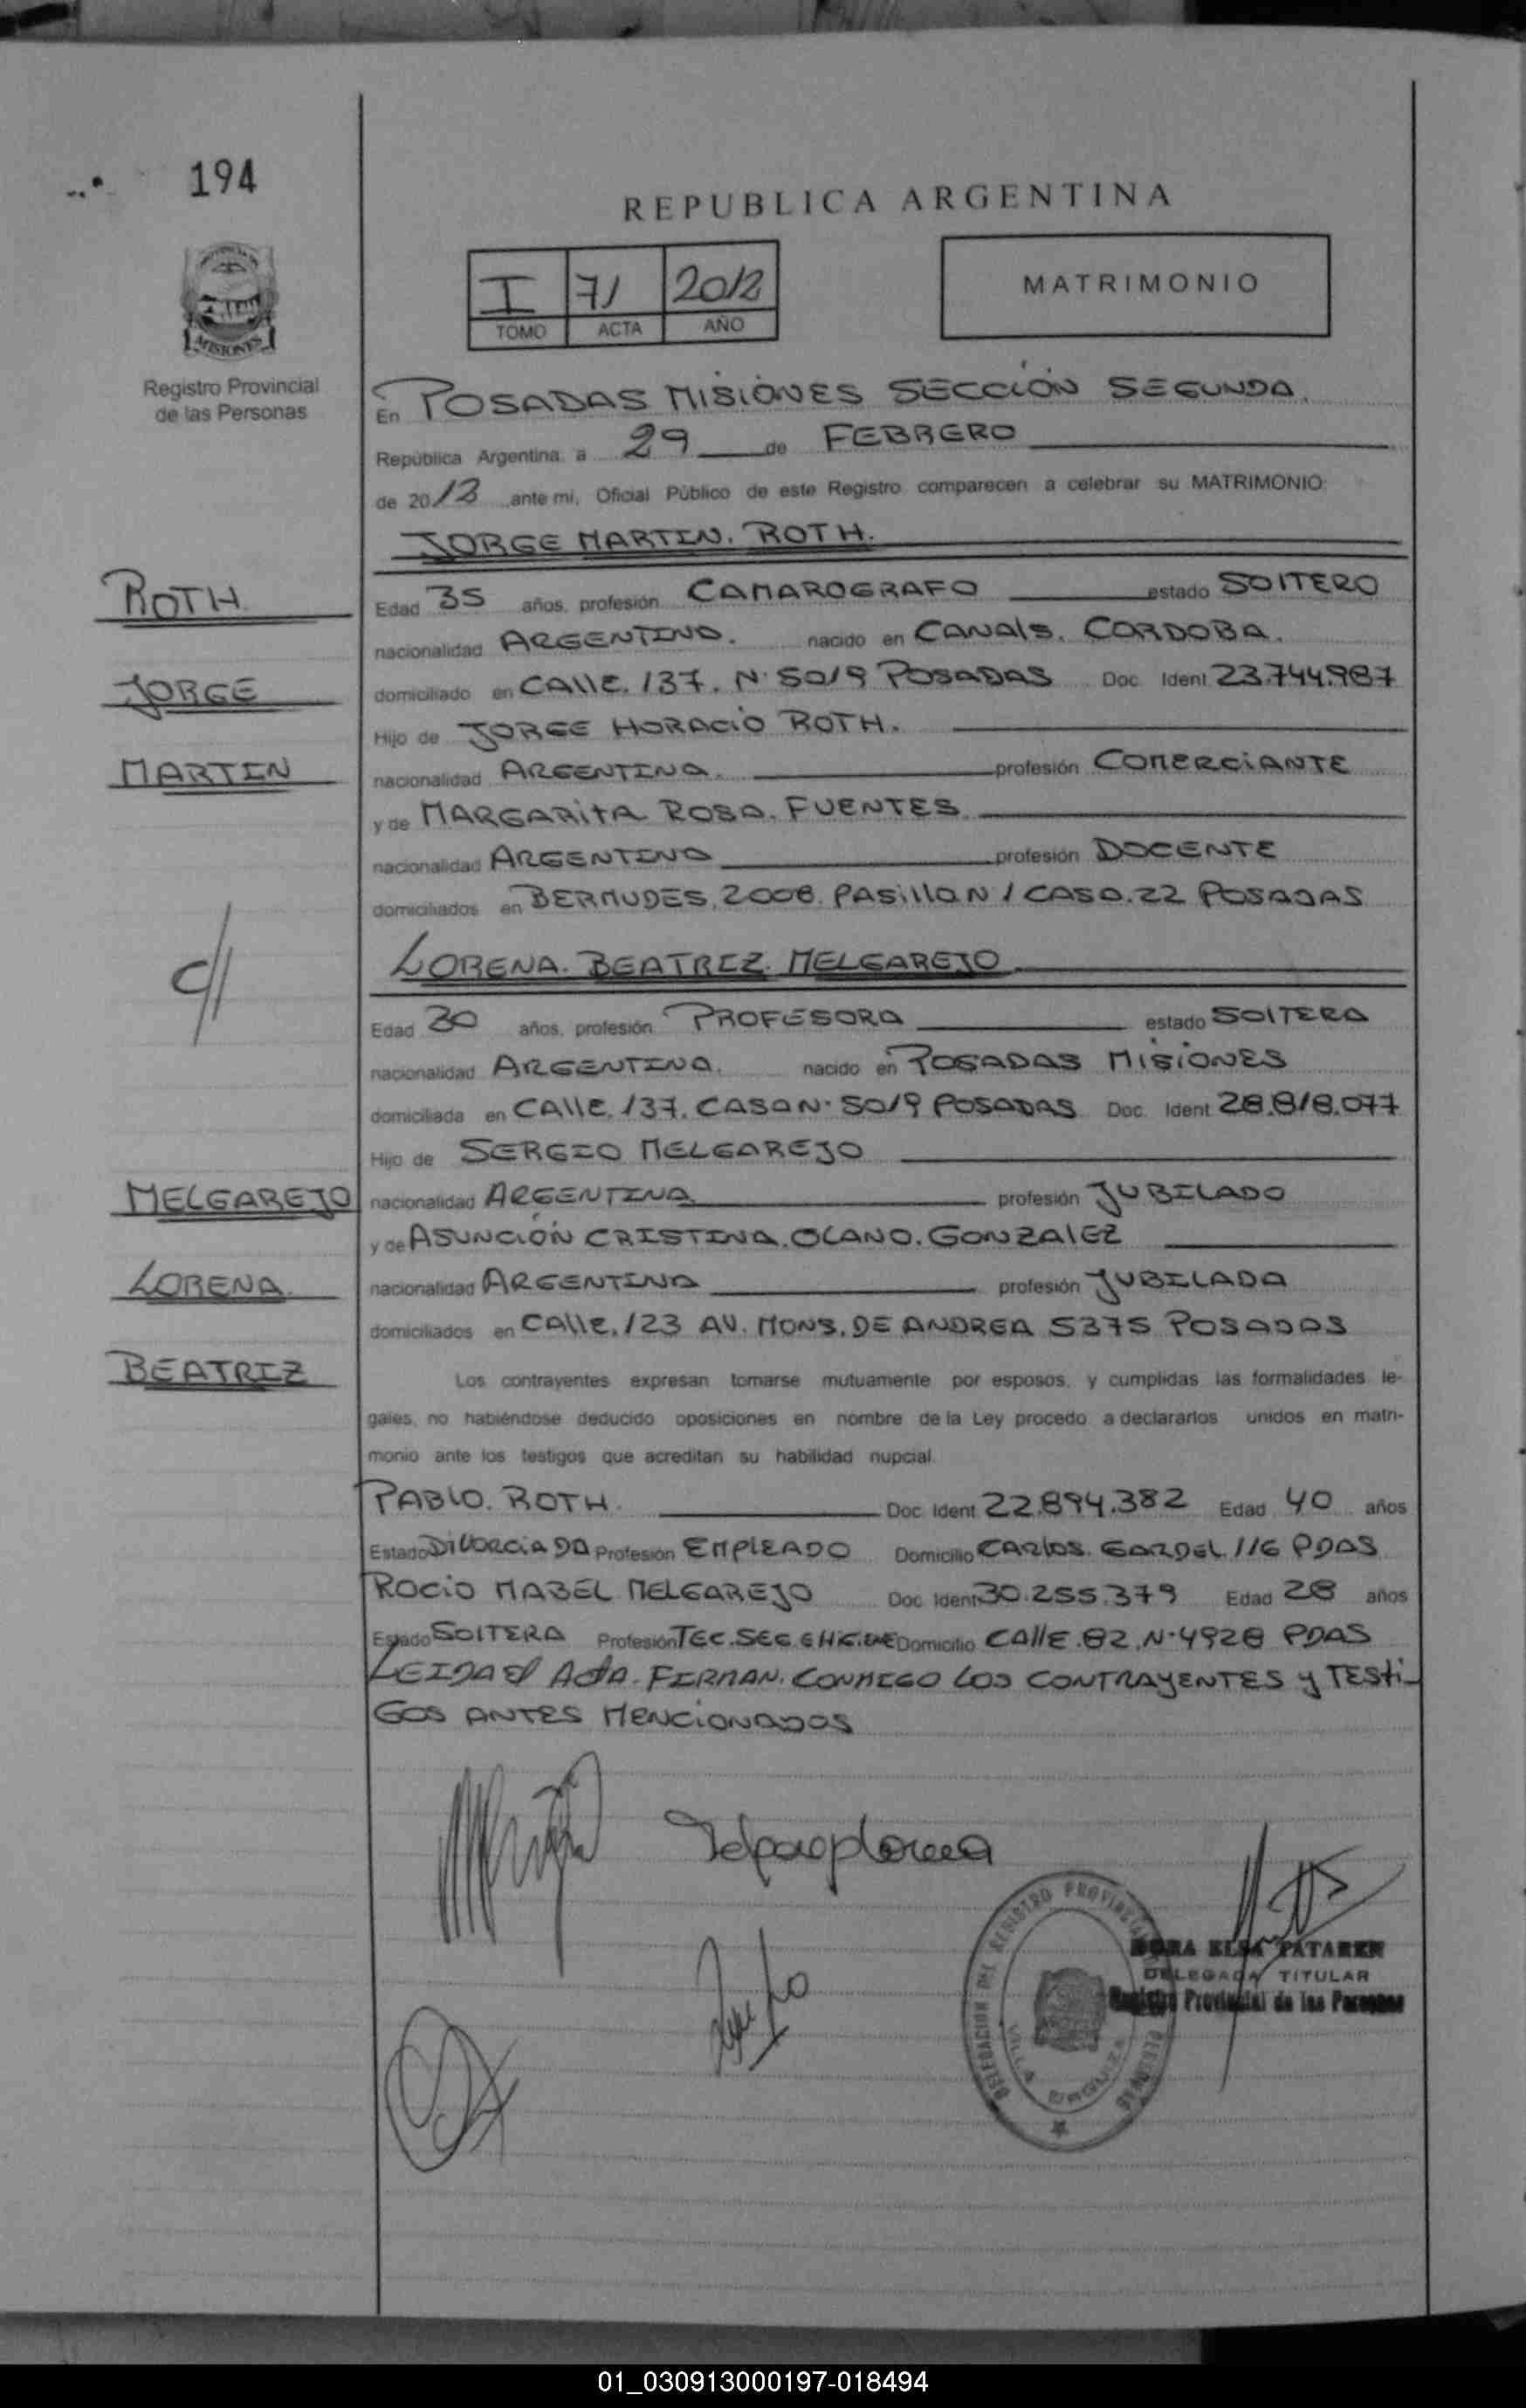 194
REPUBLICA ARGENTINA
I 71 2012
TOMO ACTA AÑO
MATRIMONIO
MISIONES
Registro Provincial
de las Personas
En POSADAS MISIONES SECCIÓN SEGUNDA.
República Argentina, a 29 de FEBRERO
de 2012, ante mi, Oficial Público de este Registro comparecen a celebrar su MATRIMONIO:
JORGE MARTIN. ROTH.
ROTH.
Edad 35 años, profesión CAMAROGRAFO estado SOLTERO
nacionalidad ARGENTINO. nacido en CANALS. CORDOBA.
JORGE
domiciliado en CALLE. 137. N. 5019 POSADAS Doc. Ident. 23.744.987
Hijo de JORGE HORACIO ROTH.
MARTIN
nacionalidad ARGENTINA. profesión COMERCIANTE
y de MARGARITA ROSA. FUENTES.
nacionalidad ARGENTINA profesión DOCENTE
domiciliados en BERMUDES, 2008. PASILLO N 1 CASA. 22 POSADAS
LORENA. BEATRIZ. MELGAREJO
Edad 30 años, profesión PROFESORA estado SOLTERA
nacionalidad ARGENTINA. nacido en POSADAS MISIONES
domiciliada en CALLE. 137. CASA N. 5019 POSADAS Doc. Ident. 28.818.077
Hijo de SERGIO MELGAREJO
MELGAREJO
nacionalidad ARGENTINA. profesión JUBILADO
y de ASUNCIÓN CRISTINA. OLANO. GONZALEZ
LORENA.
nacionalidad ARGENTINA profesión JUBILADA
domiciliados en CALLE. 123 AV. MONS. DE ANDREA 5375 POSADAS
BEATRIZ
Los contrayentes expresan tomarse mutuamente por esposos, y cumplidas las formalidades le-
gales, no habiéndose deducido oposiciones en nombre de la Ley procedo a declararlos unidos en matri-
monio ante los testigos que acreditan su habilidad nupcial.
PABLO. ROTH. Doc. Ident. 22.894.382 Edad 40 años
Estado DIVORCIADO Profesión EMPLEADO Domicilio CARLOS. GARDEL 116 PDAS
ROCIO MABEL MELGAREJO Doc. Ident. 30.255.379 Edad 28 años
Estado SOLTERA Profesión TEC. SEG. Domicilio CALLE. 82. N. 4928 PDAS
LEIDA El ActA. FIRMAN. CONMIGO LOS CONTRAYENTES y TESti-
GOS ANTES MENCIONADOS
DELEGACION DEL REGISTRO PROVINCIAL
VILLA URQUIZA
ELSA PATAREN
DELEGADA TITULAR
Registro Provincial de las Personas
01_030913000197-018494